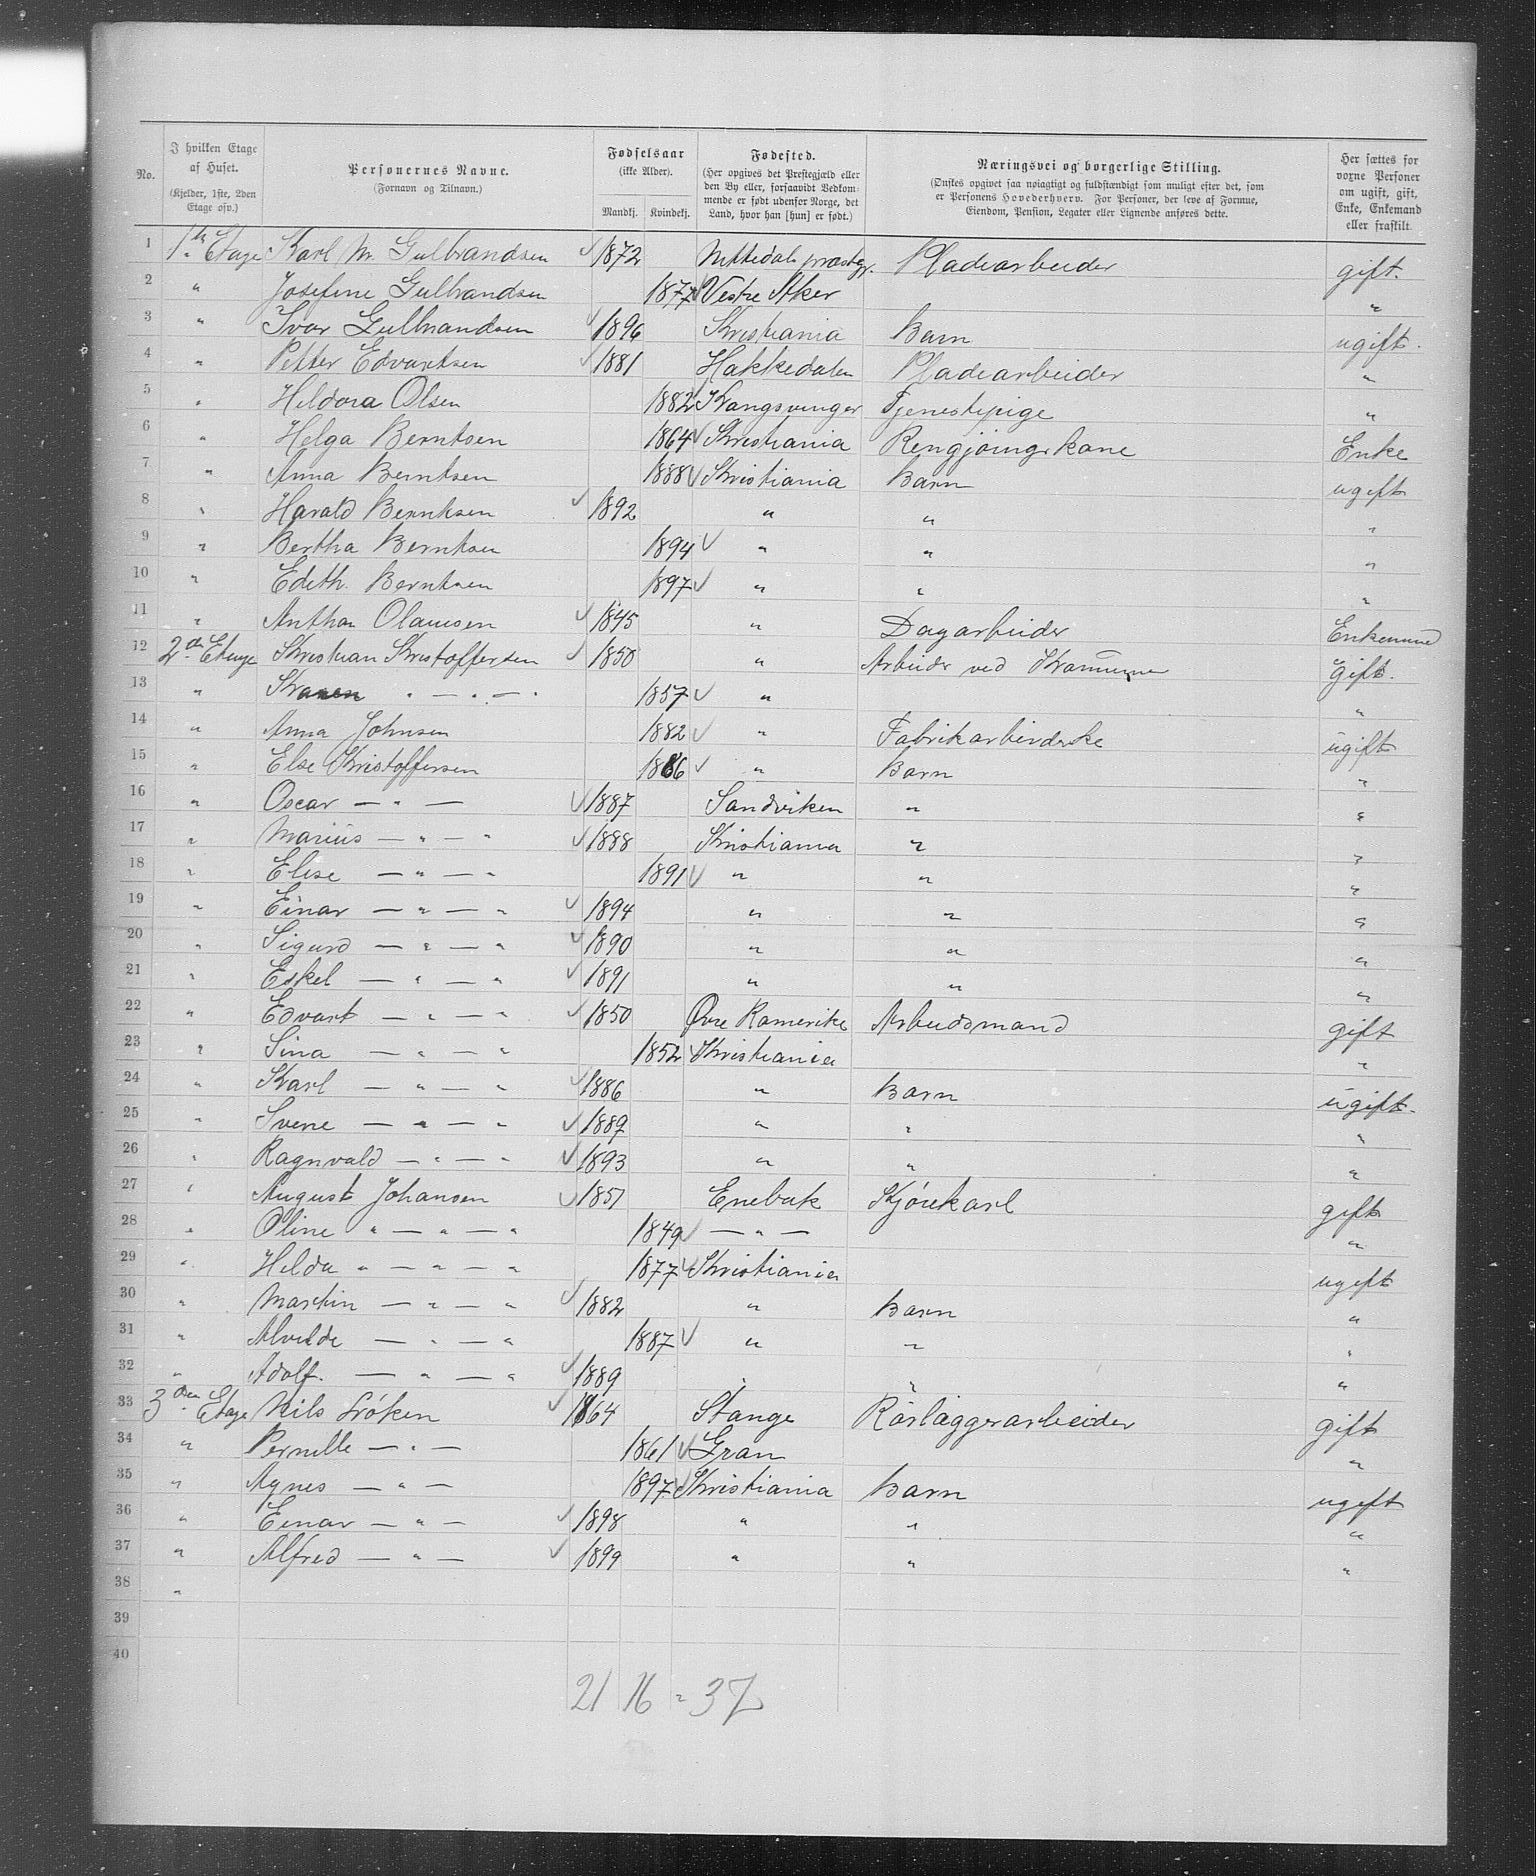 No. I hvilken Etage af Huset. (Kjelder, 1ste, 2den Etage osv.) Personernes Navne. (Fornavn og Tilnavn.) Fødselsaar (ikke Alder). Mandkj. Kvindekj. Fødested. (Her opgives det Prestegjæld eller den By eller, forsaavidt Vedkommende er født udenfor Norge, det Land, hvor han [hun] er født.) Næringsvei og borgerlige Stilling. (Ønskes opgivet saa nøiagtigt og fuldstændigt som muligt efter det, som er Personens Hovederhverv. For Personer, der leve af Formue, Eiendom, Pension, Legater eller Lignende anføres dette. Her sættes for voxne Personer om ugift, gift, Enke, Enkemand eller fraskilt.
1 1ste Etage Karl M. Gulbrandsen ✓ 1872 Nittedals præstgj. Pladearbeider gift.
2 " Josefine Gulbrandsen 1877 ✓ Vestre Aker "
3 " Ivar Gulbrandsen ✓ 1896 Kristiania Barn ugift.
4 " Petter Edvartsen ✓ 1881 Hakkedalen Pladearbeider "
5 " Heldora Olsen 1882 ✓ Kongsvinger Tjenestepige "
6 " Helga Berntsen 1864 ✓ Kristiania Rengjøingskone Enke
7 " Anna Berntsen 1888 ✓ Kristiania Barn ugift
8 " Harald Berntsen ✓ 1892 " " "
9 " Bertha Berntsen 1894 ✓ " " "
10 " Edith. Berntsen 1897 ✓ " " "
11 " Anthon Olaussen ✓ 1845 " Dagarbeider Enkemand
12 2den Etage Kristian Kristoffersen ✓ 1850 " Arbeider ved gift.
13 " Karen " — " — " 1857 ✓ " "
14 " Anna Johnsen 1882 ✓ " Fabrikarbeiderske ugift
15 " Else Kristoffersen 1886 ✓ " Barn "
16 " Oscar — " — ✓ 1887 Sandviken " "
17 " Marius — " — " ✓ 1888 Kristiania " "
18 " Elise — " — " 1891 ✓ " " "
19 " Einar — " — " ✓ 1894 " " "
20 " Sigurd — " — " ✓ 1890 " " "
21 " Eskel — " — " ✓ 1891 " " "
22 " Edvart — " — " ✓ 1850 Øvre Romerike Arbeidsmand gift
23 " Sina — " — " 1852 ✓ Kristiania "
24 " Karl — " — " ✓ 1886 " Barn ugift.
25 " Svene — " — " ✓ 1889 " " "
26 " Ragnvald — " — " ✓ 1893 " " "
27 " August Johansen ✓ 1851 Enebak Kjørekarl gift
28 " Oline " — " — " 1849 ✓ — " — "
29 " Helda " — " — " 1877 ✓ Kristiania ugift
30 " Martin — " — " ✓ 1882 " Barn "
31 " Alvilde — " — " 1887 ✓ " " "
32 " Adolf. — " — " ✓ 1889 " " "
33 3den Etage Nils Løken ✓ 1864 Stange Rørlæggerarbeider gift
34 " Pernille — " — 1861 ✓ Gran "
35 " Agnes — " — 1897 ✓ Kristiania Barn ugift
36 " Einar — " — ✓ 1898 " " "
37 " Alfred — " — ✓ 1899 " " "
38 "
39
40
21 16 = 37